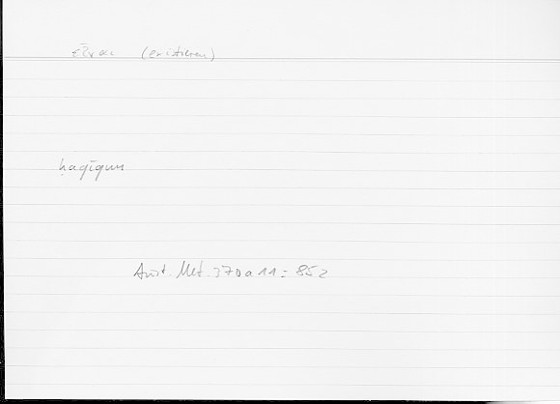 εἶναι (existieren)
ḥaqīqun
Arist. Met. 370a11 = 852